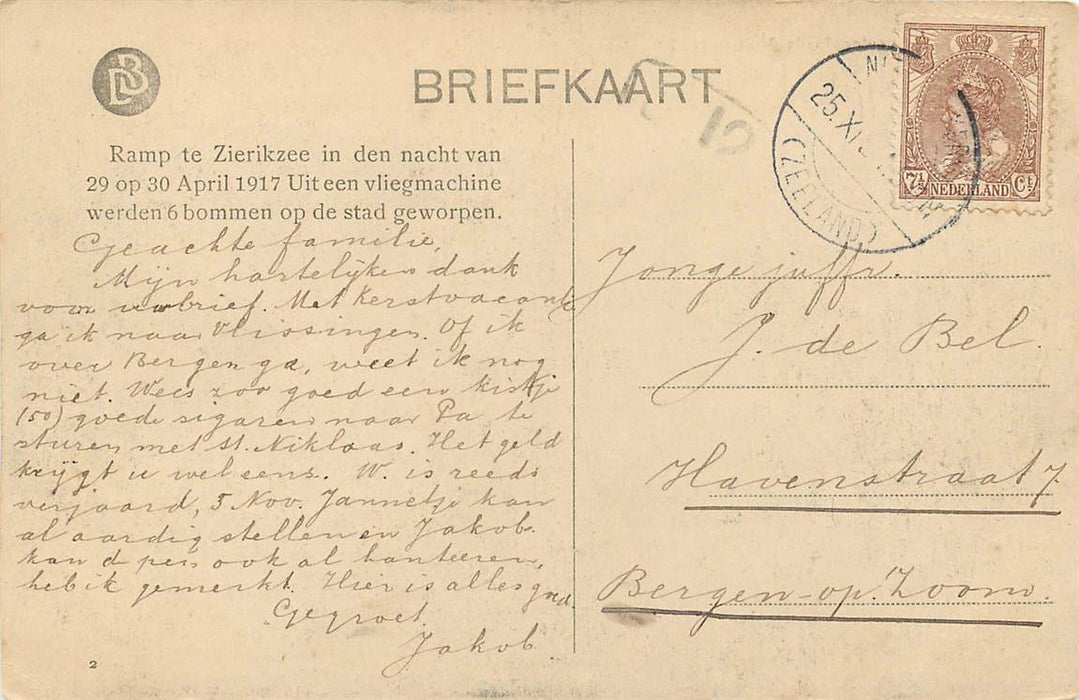 DB
BRIEFKAART
Ramp te Zierikzee in den nacht van
29 op 30 April 1917 Uit een vliegmachine
werden 6 bommen op de stad geworpen.
Geachte familie,
Mijn hartelijken dank
voor uw brief. Met Kerstvacantie
ga ik naar Vlissingen. Of ik
over Bergen ga, weet ik nog
niet. Wees zoo goed een kistje
(50) goede sigaren naar Pa te
sturen met St. Niklaas. Het geld
krijgt u wel eens. W. is reeds
verjaard, 5 Nov. Jannetje kan
al aardig stellen en Jakob
kan d pen ook al hanteeren,
heb ik gemerkt. Hier is alles goed.
Gegroet.
Jakob
2
12
25.XI
(ZEELAND)
7½ NEDERLAND Ct
Jonge juffr.
J. de Bel.
Havenstraat 7.
Bergen-op-Zoom.